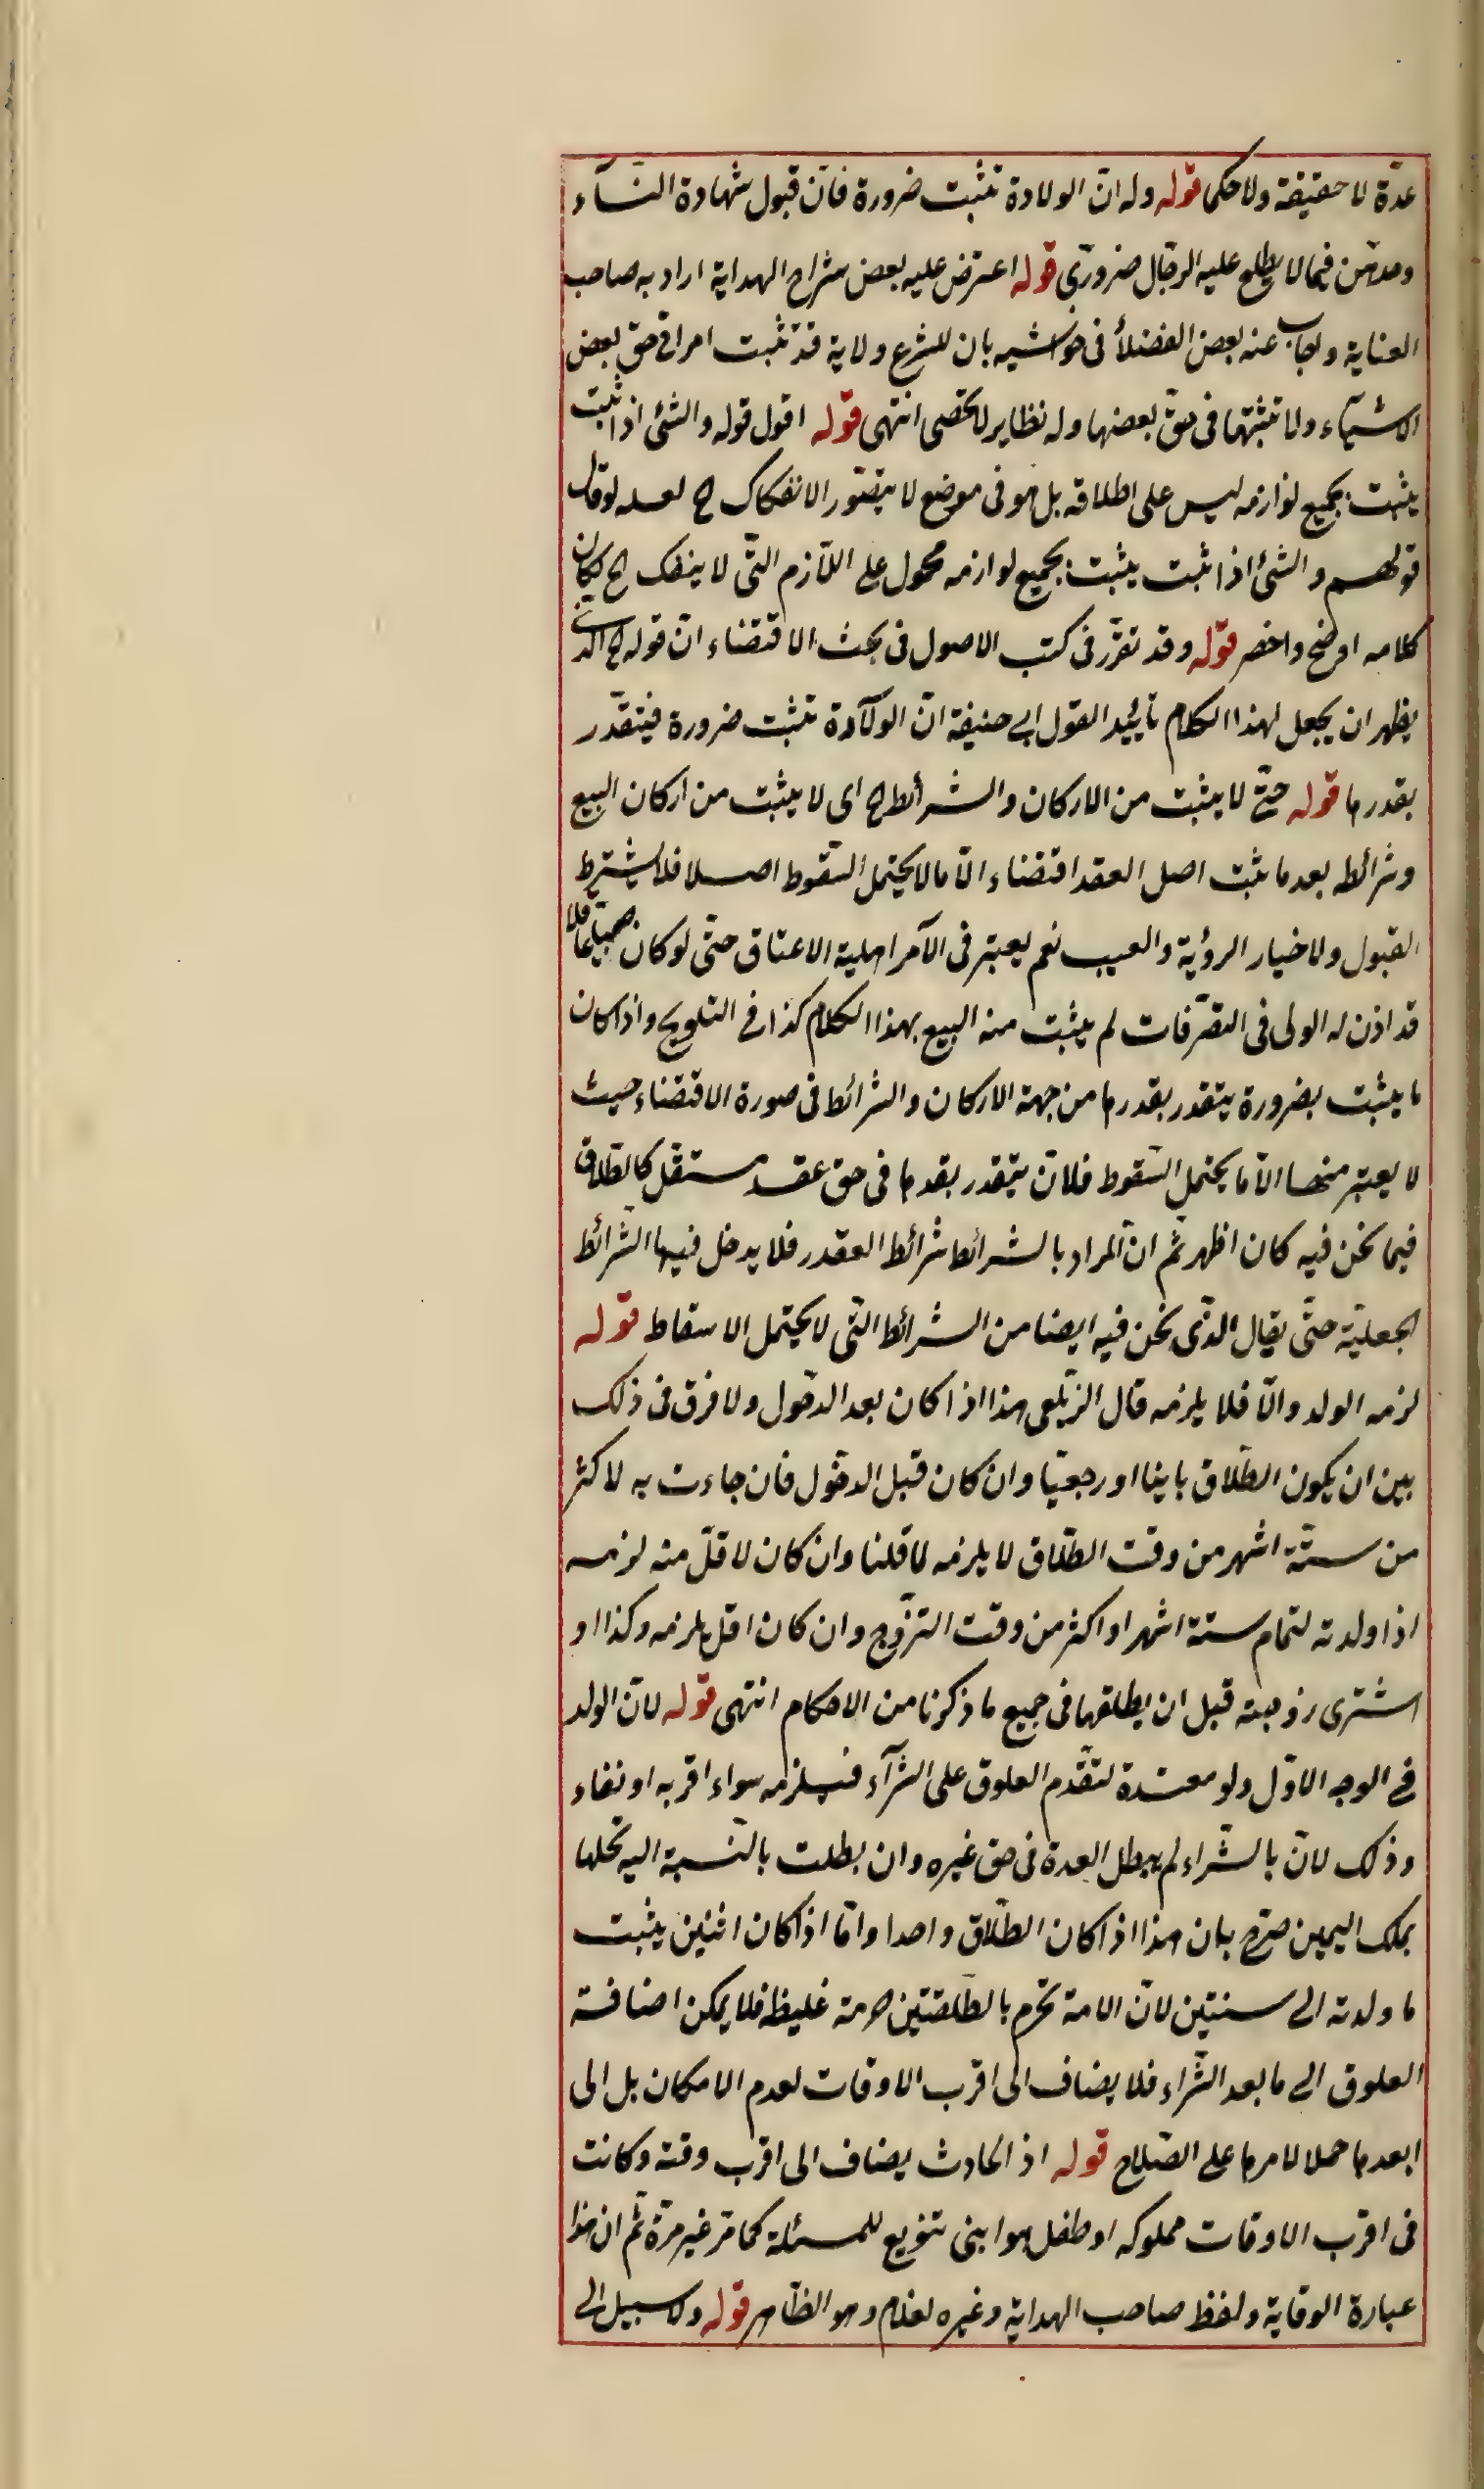 عدّة لا حقيقة ولا حكما قوله وله انّ الولادة تثبت ضرورة فانّ قبول شهادة النسآء
وحدهنّ فيما لا يطلع عليه الرجال ضرورىّ قوله اعترض عليه بعض شراح الهداية اراد به صاحب
العناية واجاب عنه بعض الفضلأ فى حواشيه بان للشرع ولاية قد تثبت امرا فى حق بعض
الاشيآء ولا تثبتها فى حقّ بعضها وله نظاير لا تحصى انتهى قوله اقول قوله والشئ اذا ثبت
يثبت بجميع لوازمه ليس على اطلاقه بل هو فى موضع لا يتصّور الانفكاك ح لعله لو قال
قولهم والشئ اذا ثبت يثبت بجميع لوازمه محمول على اللّازم التّى لا ينفك الح لكان
كلامه اوضح واخصر قوله وقد تقرّر فى كتب الاصول فى بحث الاقتضاء انّ قوله الح الذى
يظهر ان يجعل لهذا الكلام تأييد القول ابى حنيفة انّ الولآدة تثبت ضرورة فيتقدّر
بقدرها قوله حتىّ لا يثبت من الاركان والشرائط ح اى لا يثبت من اركان البيع
وشرائطه بعد ما يثبت اصل العقد اقتضاء الّا ما لا يحتمل السّقوط اصلا فلا يشترط
القبول ولا خيار الرؤية والعيب نعم يعتبر فى الآمر اهلية الاعتاق حتّى لو كان صبيّا عاقلا
قد اذن له الولى فى التصّرفات لم يثبت منه البيع بهذا الكلام كذا فى التلويح واذا كان
ما يثبت بضرورة يتقدر بقدرها من جهة الاركان والشرائط فى صورة الاقتضاء حيث
لا يعتبر منها الّا ما يحتمل السّقوط فلانّ يتقدر بقدرها فى حق عقد مستقّل كالطّلاق
فيما نحن فيه كان اظهر ثم انّ المراد بالشرائط شرائط العقدر فلا يدخل فيها الشّرائط
الجعليّة حتّى يقال الذّى نحن فيه ايضا من الشرائط التّى لا يحتمل الاسقاط قوله
لزمه الولد والّا فلا يلزمه قال الزّيلعى هذا اذا كان بعد الدخول ولا فرق فى ذلك
بين ان يكون الطّلاق باينا او رجعيّا وان كان قبل الدخول فان جاءت به لاكثر
من ستّة اشهر من وقت الطّلاق لا يلزمه لما قلنا وان كان لاقلّ منه لزمه
اذا ولدته لتمام ستة اشهر او اكثر من وقت التزّوج وان كان اقل يلزمه وكذا او
اشترى زوجته قبل ان يطلقها فى جميع ما ذكرنا من الاحكام انتهى قوله لانّ الولد
فى الوجه الاوّل ولو معتدة لتقّدم العلوق على الشرآء فيلزمه سواء اقر به او نفاه
وذلك لانّ بالشّراء لم يبطل العدة فى حق غيره وان بطلت بالنّسبة اليه لحلها
بملك اليمين صرّح بان هذا اذا كان الطّلاق واحدا وامّا اذا كان اثنين يثبت
ما ولدته الى سنتين لانّ الامة تحرم بالطّلقتين حرمة غليظة فلا يمكن اضافة
العلوق الى ما بعد الشّراء فلا يضاف الى اقرب الاوقات لعدم الامكان بل الى
ابعدها حملا لامرها على الصّلاح قوله اذ الحادث يضاف الى اقرب وقته وكانت
فى اقرب الاوقات مملوكه او طفل هو ابنى تفريع للمسئلة كما مّر غير مرّة ثم ان هذا
عبارة الوقاية ولفظ صاحب الهداية وغيره لغلام وهو الظّاهر قوله ولا سبيل الى